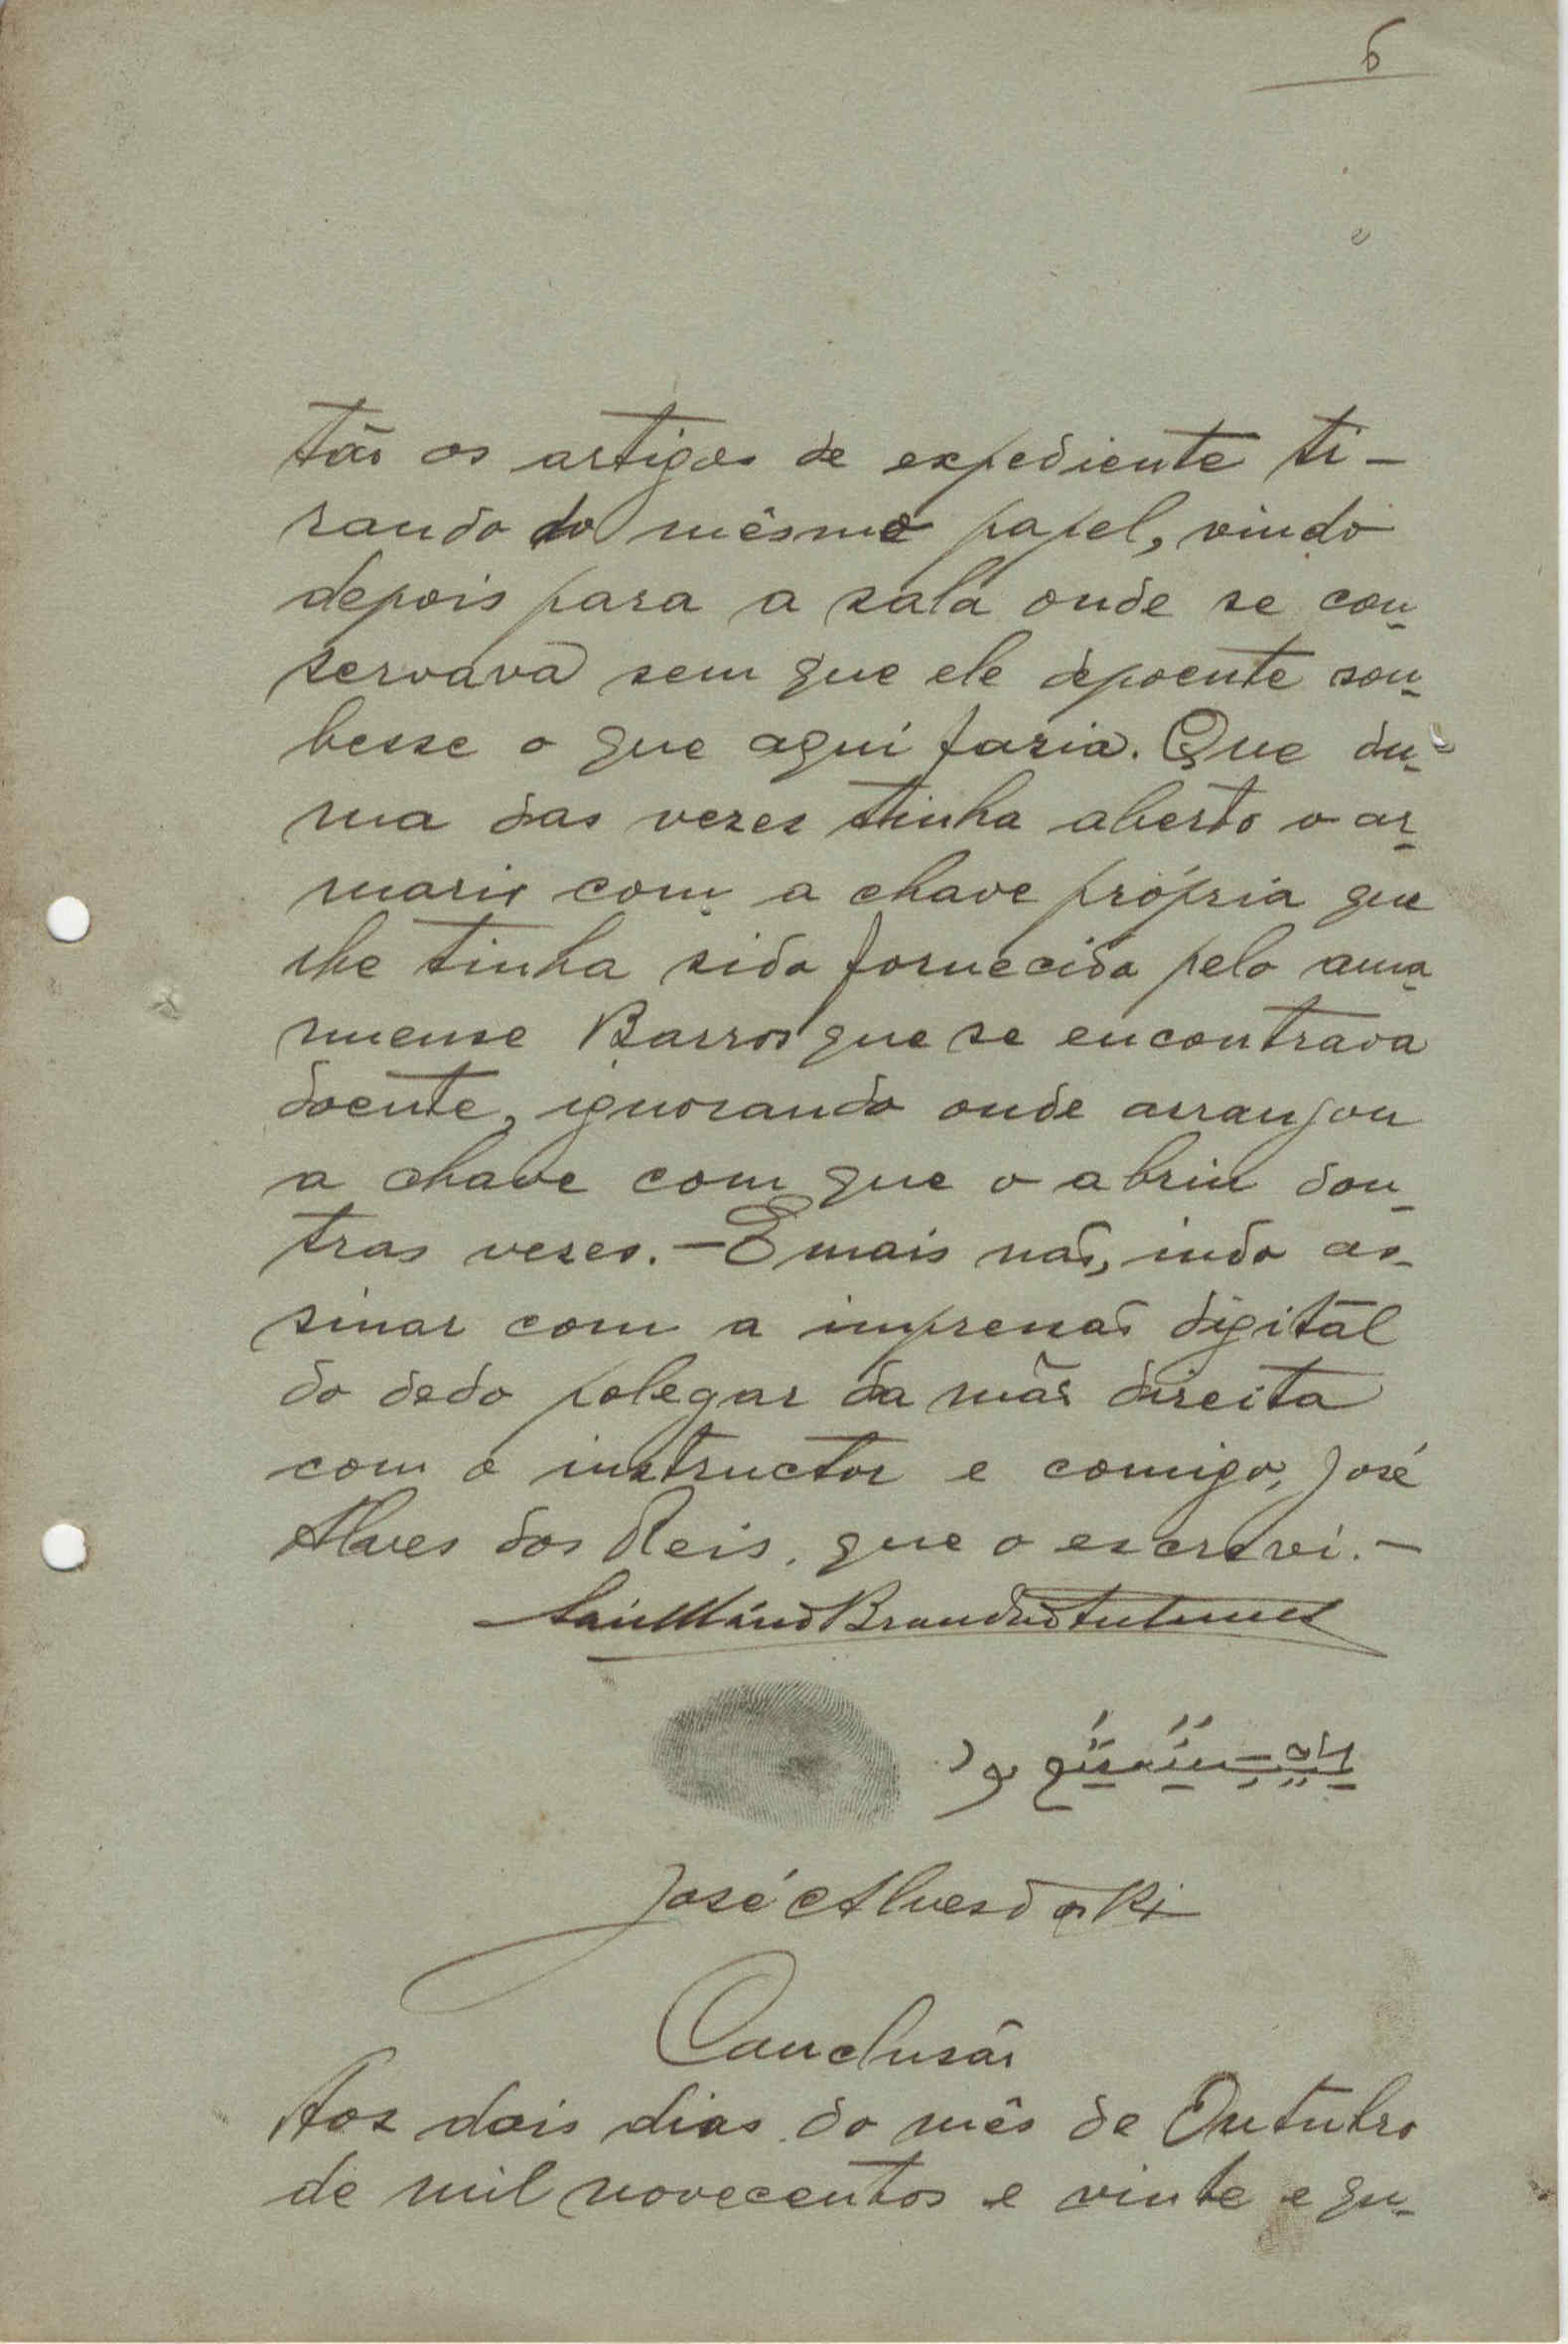 6
tão os artigos de expediente ti-
rando do mêsmo papel, vindo
depois para a sala onde se con-
servava sem que ele depoente sou-
besse o que aqui faria. Que du-
ma das vezes tinha aberto o ar-
mario com a chave própria que
lhe tinha sido fornecida pelo ama-
nuense Barros que se encontrava
doente, ignorando onde arranjou
a chave com que o abriu dou-
tras vezes.—E mais não, indo as-
sinar com a impressão digital
do dedo polegar da mão direita
com o instructor e comigo, José
Alves dos Reis, que o escrevi.—
Brandão Antunes
José Alves dos Reis
Conclusão
Aos dois dias do mês de Outubro
de mil novecentos e vinte e qu-